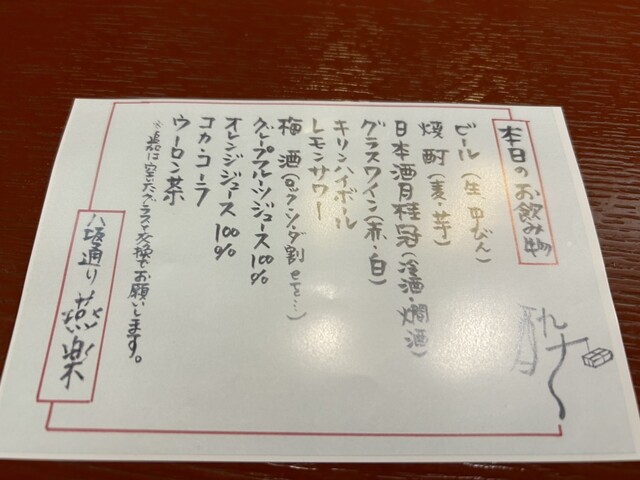 本日のお飲み物
ビール(生・中びん)
焼酎(麦・芋)
日本酒月桂冠(冷酒・燗酒)
グラスワイン(赤・白)
キリンハイボール
レモンサワー
梅酒(ロック・ソーダ割 etc…)
グレープフルーツジュース100%
オレンジジュース100%
コカ・コーラ
ウーロン茶
空いたグラスと交換でお願いします。
八坂通り 燕楽